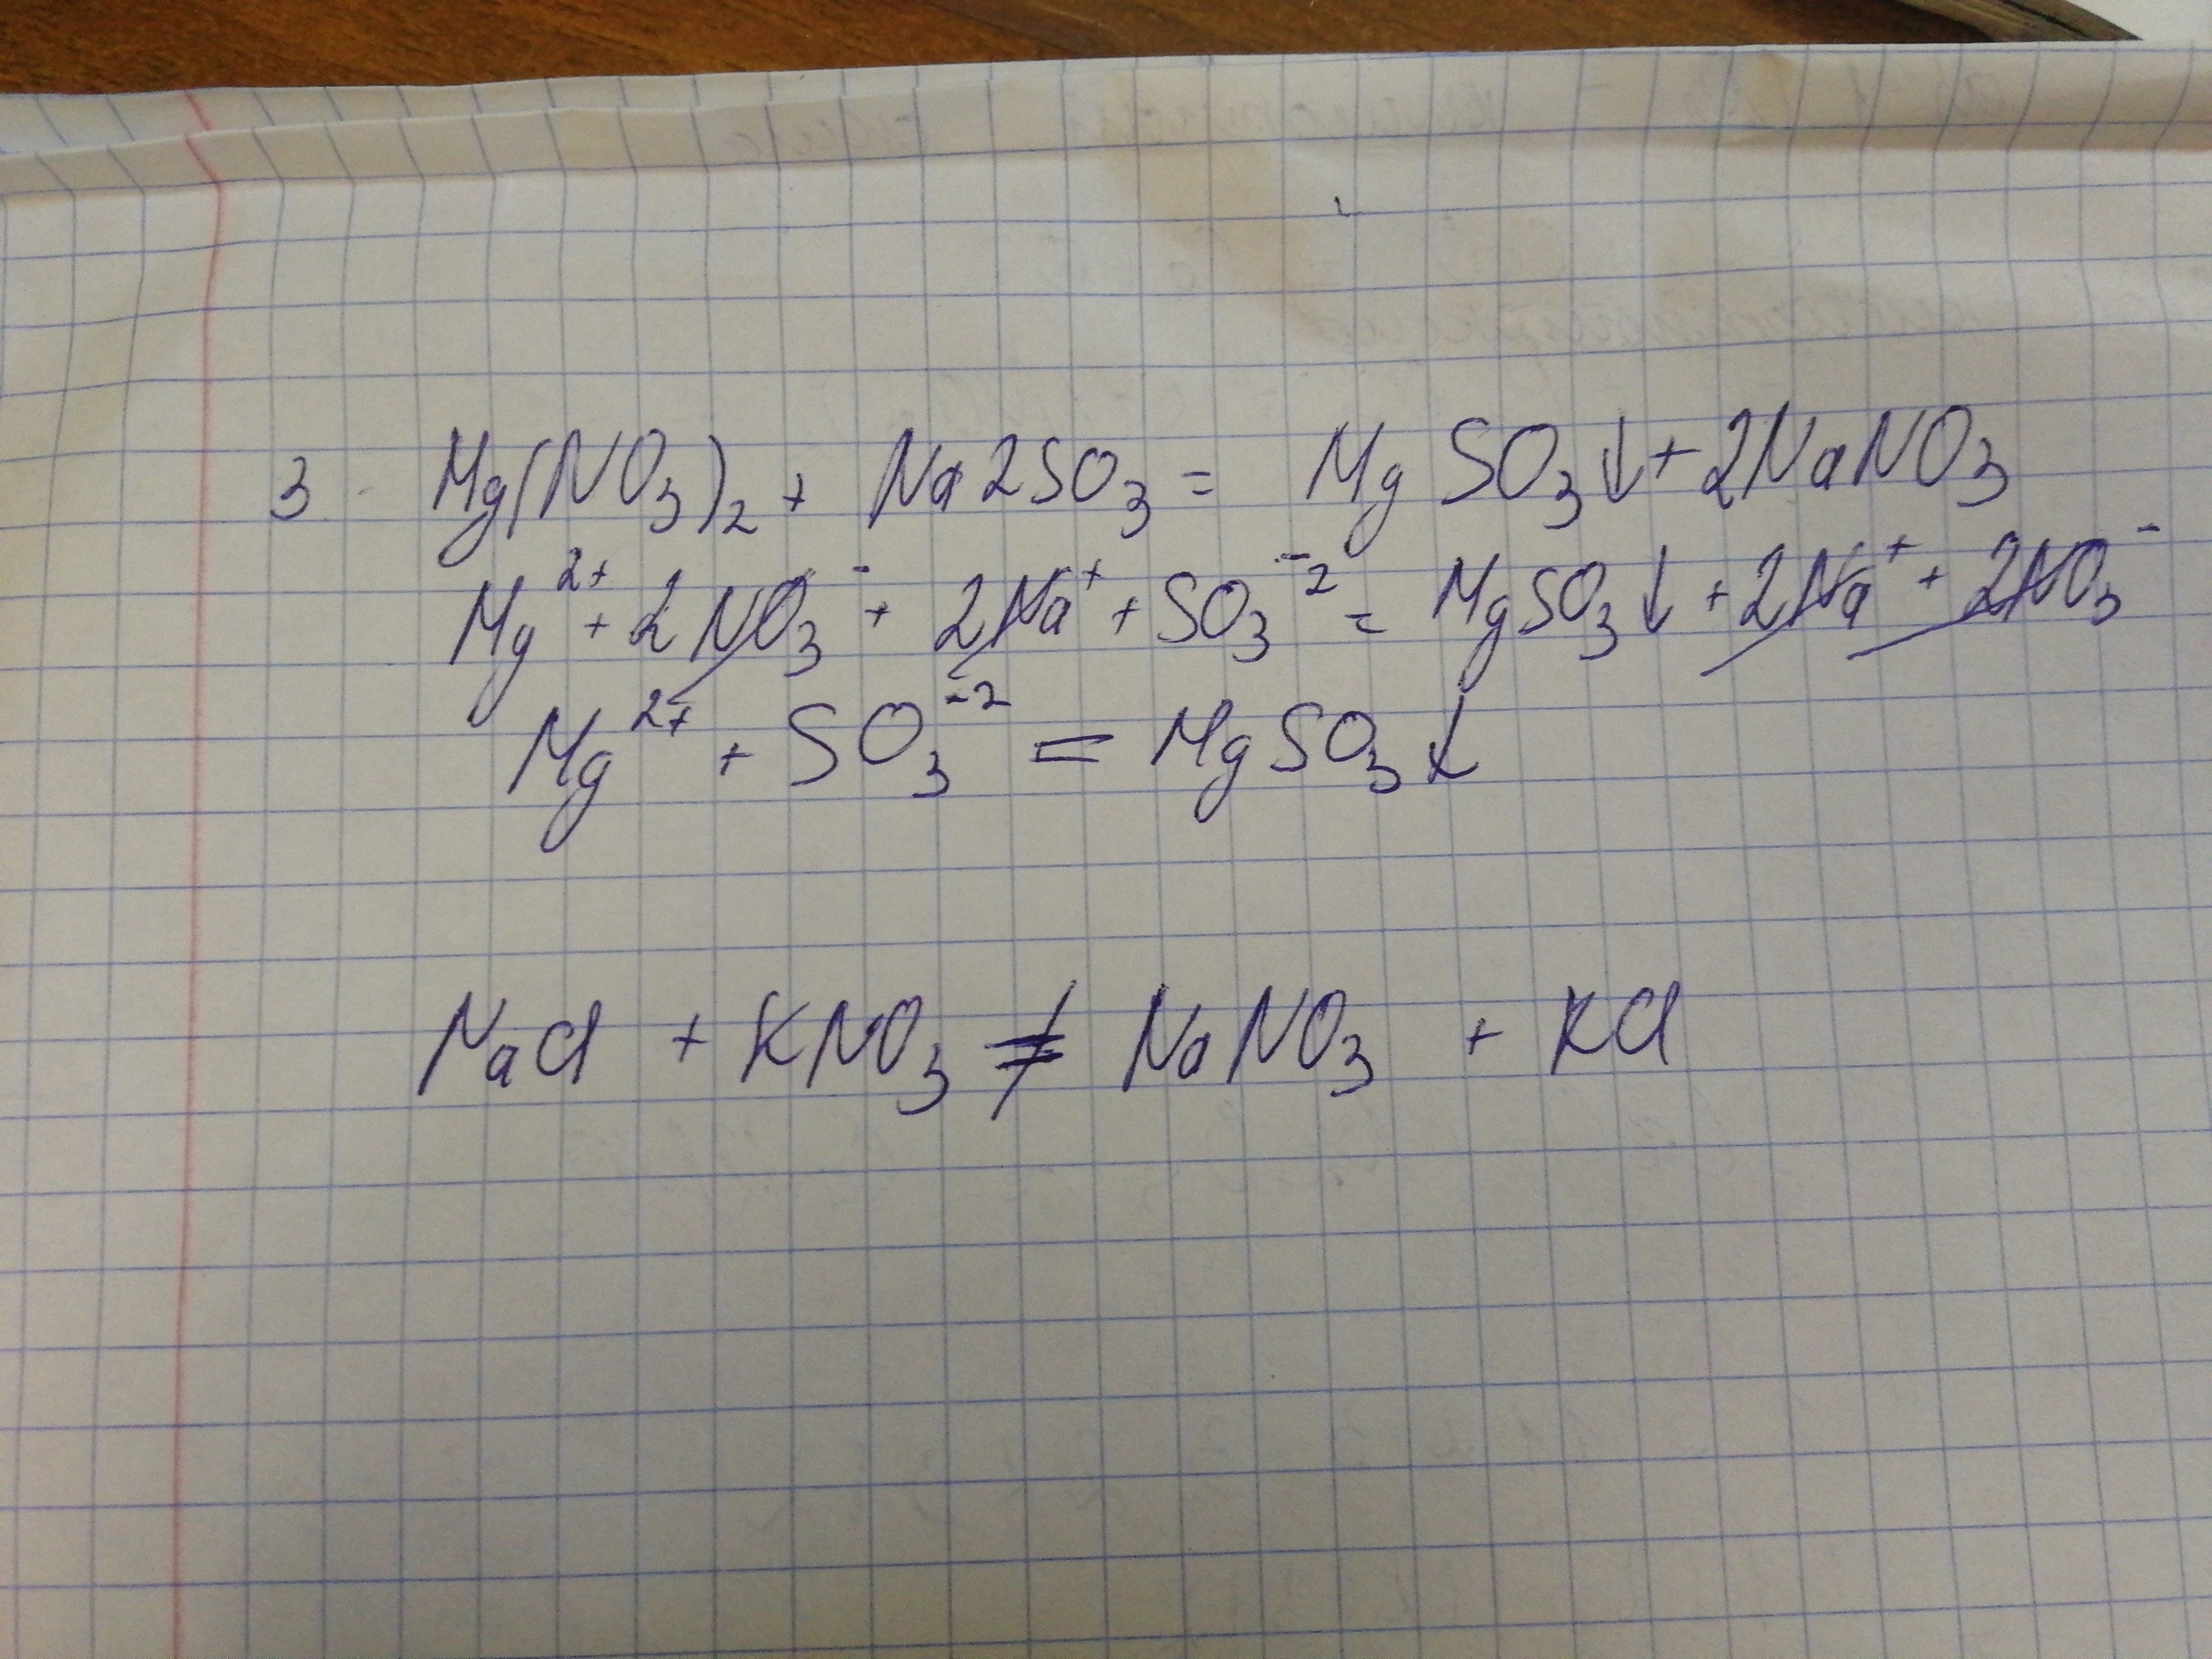 3 - Mg(NO₃)₂ + Na2SO₃ = MgSO₃↓ + 2NaNO₃
Mg²⁺ + 2NO₃⁻ + 2Na⁺ + SO₃⁻² = MgSO₃↓ + 2Na⁺ + 2NO₃⁻
Mg²⁺ + SO₃⁻² = MgSO₃↓
NaCl + KNO₃ ≠ NaNO₃ + KCl